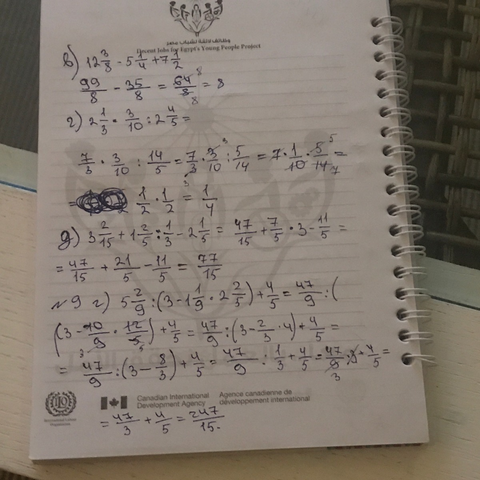 وظائف لائقة لشباب مصر
Decent Jobs for Egypt's Young People Project
в) 12 3/8 - 5 1/4 + 7 1/2
99/8 - 35/8 = 64/8 = 8
г) 2 1/3 · 3/10 : 2 4/5 =
7/3 · 3/10 : 14/5 = 7/3 · 3/10 : 5/14 = 7 · 1/10 · 5/14 =
= 1/2 · 1/2 = 1/4
д) 3 2/15 + 1 2/5 : 1/3 - 2 1/5 = 47/15 + 7/5 · 3 - 11/5 =
= 47/15 + 21/5 - 11/5 = 77/15
№9 г) 5 2/9 : (3 - 1 1/9 · 2 2/5) + 4/5 = 47/9 : (
(3 - 10/9 · 12/5) + 4/5 = 47/9 : (3 - 2/3 · 4) + 4/5 =
= 47/9 : (3 - 8/3) + 4/5 = 47/9 : 1/3 + 4/5 = 47/9 · 3 + 4/5 =
Canadian International Development Agency
Agence canadienne de développement international
= 47/3 + 4/5 = 247/15.